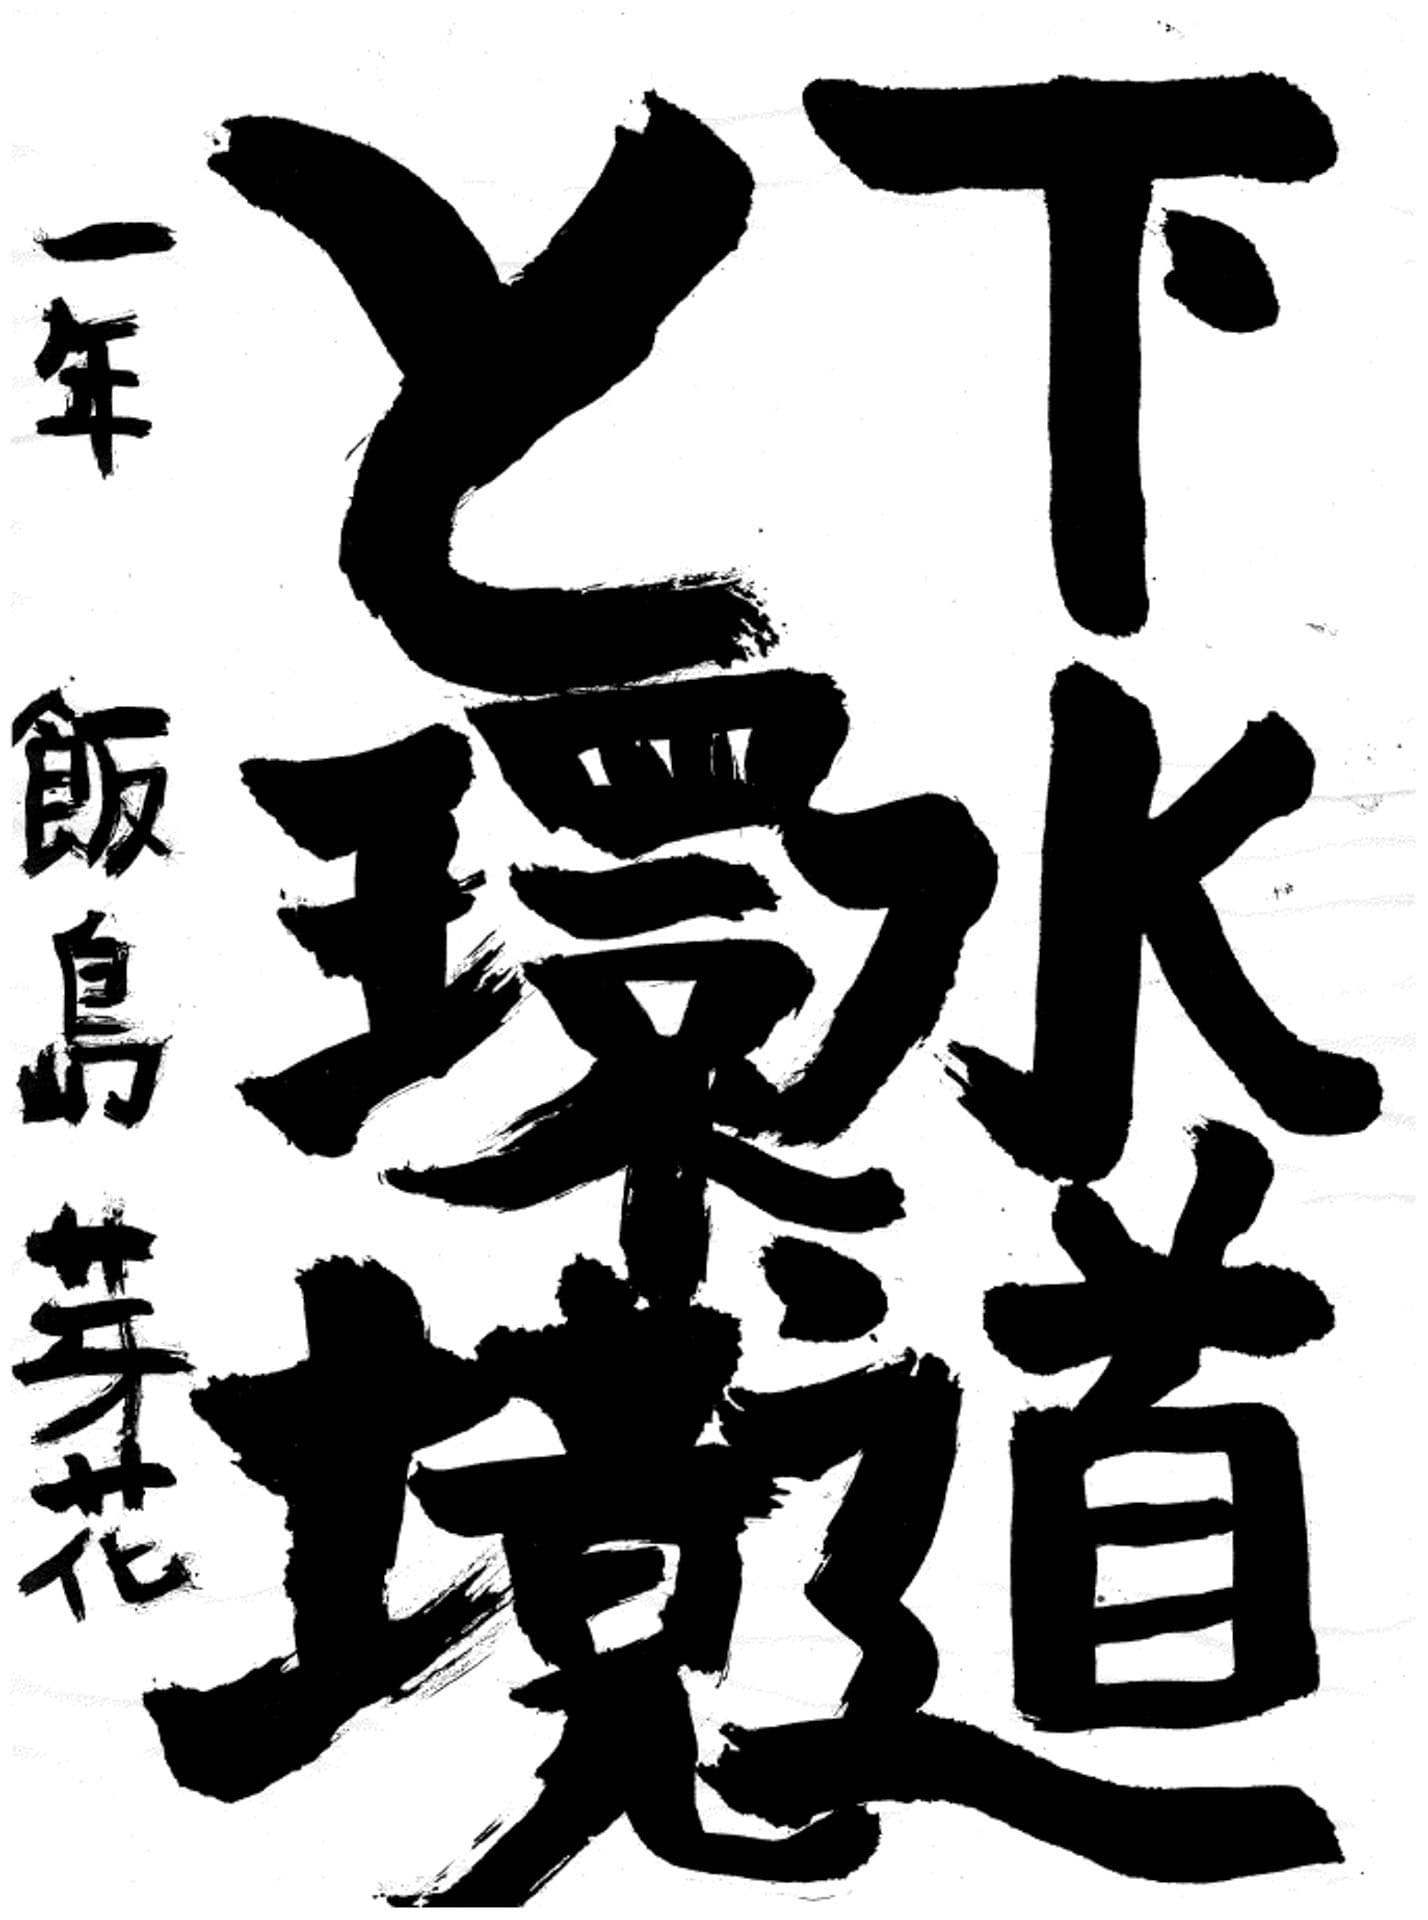 下水道
と環境
一年 飯島芽花